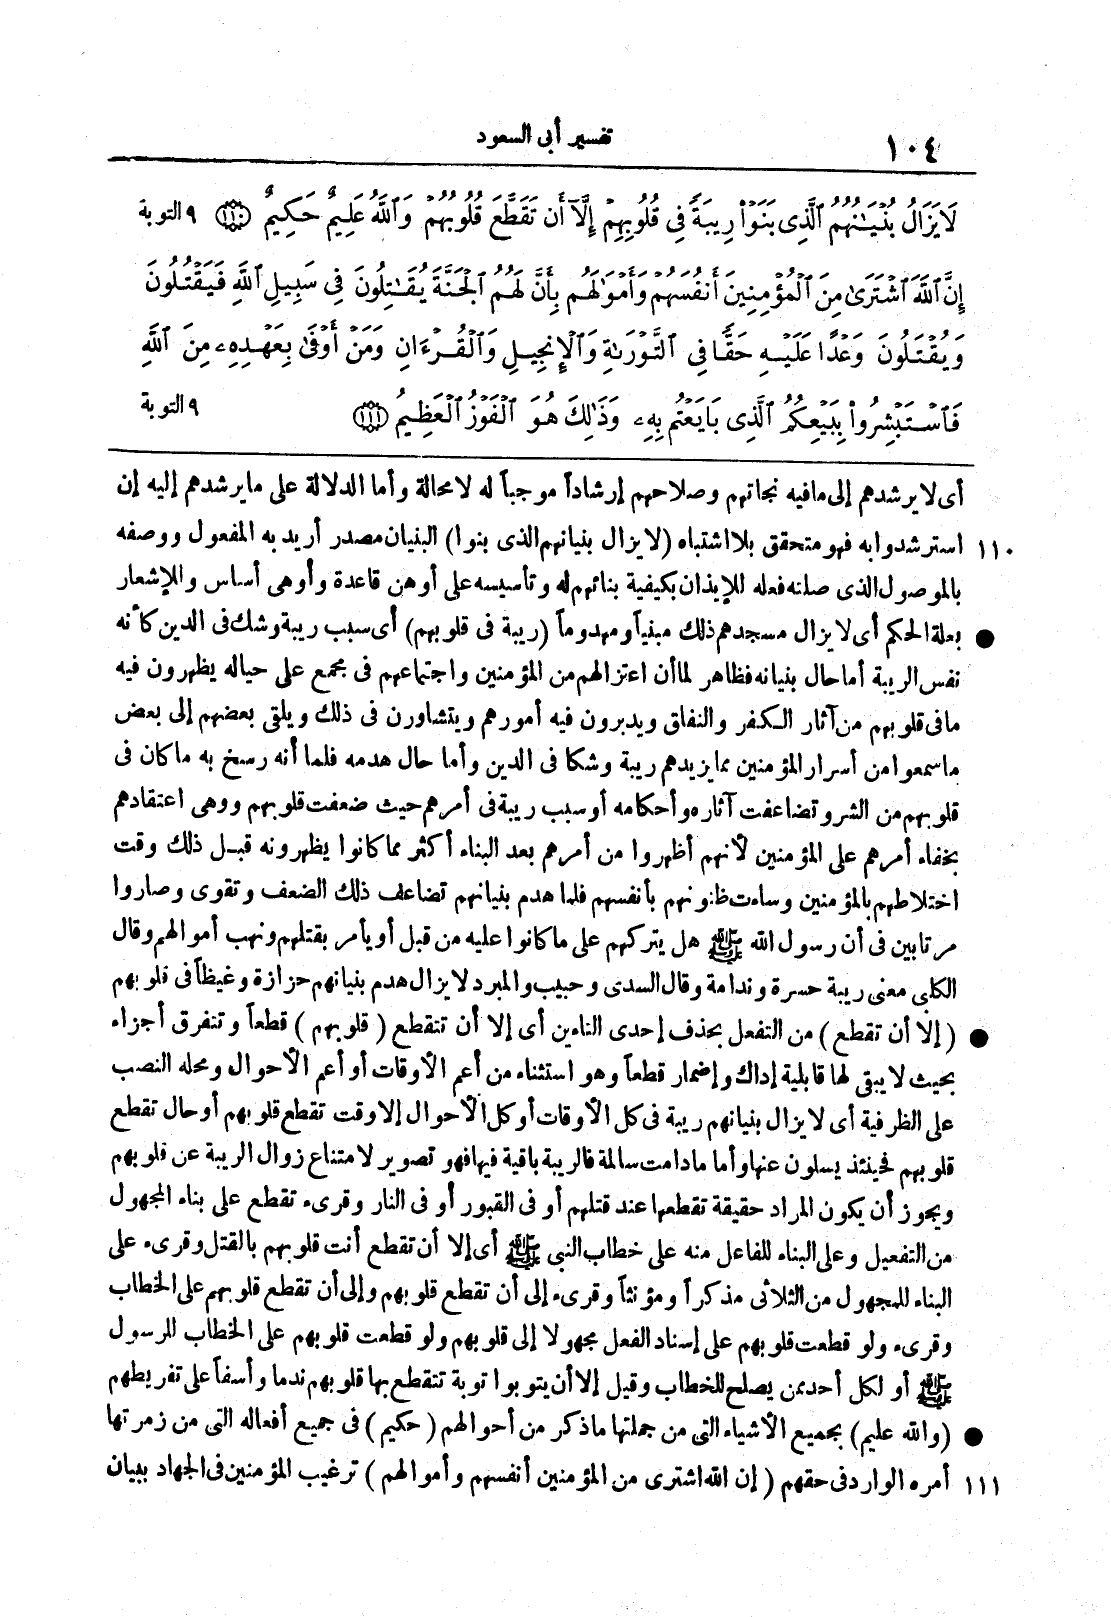 ١٠٤ تفسير أبى السعود
لَا يَزَالُ بُنْيَـٰنُهُمُ ٱلَّذِى بَنَوْا۟ رِيبَةً فِى قُلُوبِهِمْ إِلَّآ أَن تَقَطَّعَ قُلُوبُهُمْ وَٱللَّهُ عَلِيمٌ حَكِيمٌ ﴿١١٠﴾ ٩ التوبة
إِنَّ ٱللَّهَ ٱشْتَرَىٰ مِنَ ٱلْمُؤْمِنِينَ أَنفُسَهُمْ وَأَمْوَٰلَهُم بِأَنَّ لَهُمُ ٱلْجَنَّةَ يُقَـٰتِلُونَ فِى سَبِيلِ ٱللَّهِ فَيَقْتُلُونَ
وَيُقْتَلُونَ وَعْدًا عَلَيْهِ حَقًّا فِى ٱلتَّوْرَىٰةِ وَٱلْإِنجِيلِ وَٱلْقُرْءَانِ وَمَنْ أَوْفَىٰ بِعَهْدِهِۦ مِنَ ٱللَّهِ
فَٱسْتَبْشِرُوا۟ بِبَيْعِكُمُ ٱلَّذِى بَايَعْتُم بِهِۦ وَذَٰلِكَ هُوَ ٱلْفَوْزُ ٱلْعَظِيمُ ﴿١١١﴾ ٩ التوبة
أى لا يرشدهم إلى ما فيه نجاتهم وصلاحهم إرشاداً موجباً له لا محالة وأما الدلالة على ما يرشدهم إليه إن
١١٠ استرشدوا به فهو متحقق بلا اشتباه (لا يزال بنيانهم الذى بنوا) البنيان مصدر أريد به المفعول ووصفه
بالموصول الذى صلته فعله للإيذان بكيفية بنائهم له وتأسيسه على أوهن قاعدة وأوهى أساس والإشعار
● بعلة الحكم أى لا يزال مسجدهم ذلك مبنياً ومهدوماً (ريبة فى قلوبهم) أى سبب ريبة وشك فى الدين كأنه
نفس الريبة أما حال بنيانه فظاهر لما أن اعتزالهم من المؤمنين واجتماعهم فى مجمع على حياله يظهرون فيه
ما فى قلوبهم من آثار الكفر والنفاق ويدبرون فيه أمورهم ويتشاورن فى ذلك ويلقى بعضهم إلى بعض
ما سمعوا من أسرار المؤمنين مما يزيدهم ريبة وشكا فى الدين وأما حال هدمه فلما أنه رسخ به ما كان فى
قلوبهم من الشر وتضاعفت آثاره وأحكامه أو سبب ريبة فى أمرهم حيث ضعفت قلوبهم ووهى اعتقادهم
بخفاء أمرهم على المؤمنين لأنهم أظهروا من أمرهم بعد البناء أكثر مما كانوا يظهرونه قبل ذلك وقت
اختلاطهم بالمؤمنين وساءت ظنونهم بأنفسهم فلما هدم بنيانهم تضاعف ذلك الضعف وتقوى وصاروا
مرتابين فى أن رسول الله ﷺ هل يتركهم على ما كانوا عليه من قبل أو يأمر بقتلهم ونهب أموالهم وقال
الكلبى معنى ريبة حسرة وندامة وقال السدى وحبيب والمبرد لا يزال هدم بنيانهم حزازة وغيظاً فى قلوبهم
● (إلا أن تقطع) من التفعل بحذف إحدى التاءين أى إلا أن تتقطع (قلوبهم) قطعاً وتتفرق أجزاء
بحيث لا يبقى لها قابلية إدراك وإضمار قطعاً وهو استثناء من أعم الأوقات أو أعم الأحوال ومحله النصب
على الظرفية أى لا يزال بنيانهم ريبة فى كل الأوقات أو كل الأحوال إلا وقت تقطع قلوبهم أو حال تقطع
قلوبهم فحينئذ يسلون عنها وأما ما دامت سالمة فالريبة باقية فيها فهو تصوير لامتناع زوال الريبة عن قلوبهم
ويجوز أن يكون المراد حقيقة تقطعها عند قتلهم أو فى القبور أو فى النار وقرىء تقطع على بناء المجهول
من التفعيل وعلى البناء للفاعل منه على خطاب النبى ﷺ أى إلا أن تقطع أنت قلوبهم بالقتل وقرىء على
البناء للمجهول من الثلاثى مذكراً ومؤنثاً وقرىء إلى أن تقطع قلوبهم وإلى أن تقطع قلوبهم على الخطاب
وقرىء ولو قطعت قلوبهم على إسناد الفعل مجهولا إلى قلوبهم ولو قطعت قلوبهم على الخطاب للرسول
ﷺ أو لكل أحد ممن يصلح للخطاب وقيل إلا أن يتوبوا توبة تتقطع بها قلوبهم ندما وأسفاً على تفريطهم
● (والله عليم) بجميع الأشياء التى من جملتها ما ذكر من أحوالهم (حكيم) فى جميع أفعاله التى من زمرتها
١١١ أمره الوارد فى حقهم (إن الله اشترى من المؤمنين أنفسهم وأموالهم) ترغيب المؤمنين فى الجهاد ببيان